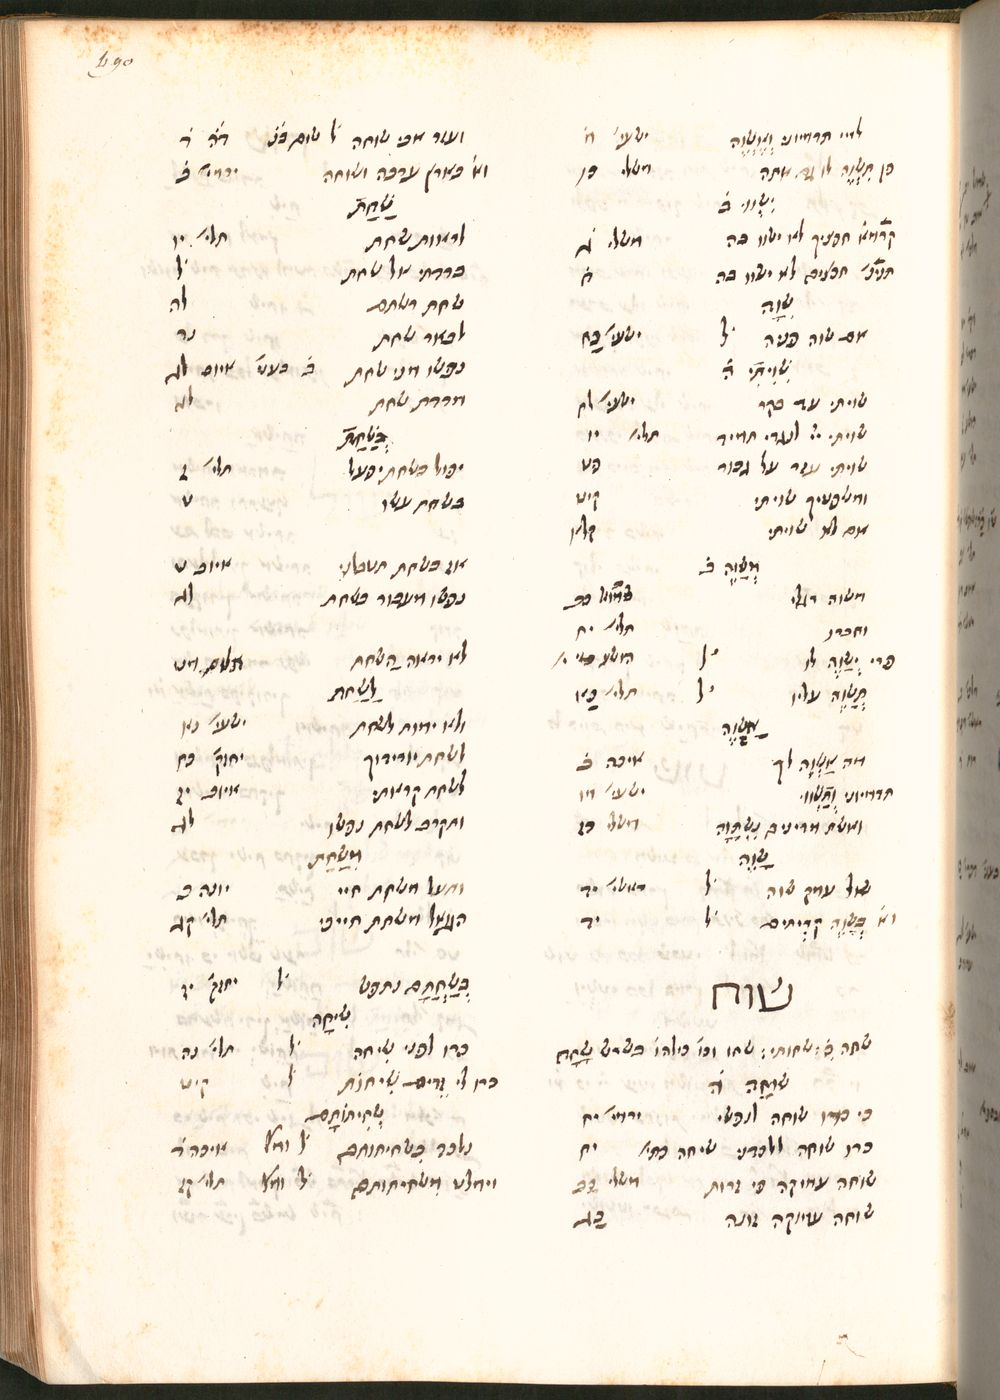 490
למי תדמיוני וְאֶשְׁוֶה ישעי׳ מ
פן תִּשְׁוֶה לו גם אתה משלי כו
יִשְׁווּ ב
חפציך לא ישוו בה משלי ג
חפצים לא ישוו בה ח
שִׁוָּה
אם שוה פניה ל ישעי׳ כח
שִׁוִּיתִי ה
שויתי עד בקר ישעי׳ לח
שויתי יי׳ לנגדי תמיד תלי׳ יו
שויתי עזר על גבור פט
ומשפטיך שויתי קיט
אם לא שויתי קלא
מְשַׁוֶּה ב
משוה רגלי כב
וחברו תלי׳ יח
פרי יְשַׁוֶּה לו ל הושע י
תְּשַׁוֶּה עליו ל תלי׳ כא
אַשְׁוֶה
מה אַשְׁוֶה לך איכה ב
תדמיוני וְתַשְׁווּ ישעי׳ מו
ואשת מדינים נִשְׁתָּוָה משלי כז
שָׁוֵה
אל עמק שוה ל בראשי׳ יד
וא׳ בְּשָׁוֵה קריתים ל יד
שוח
שחה שחותי שחו וכו׳ כולהו בשרש שָׁחָה
שׁוּחָה ה
כי כרו שוחה לנפשי ירמי׳ יח
כרו שוחה ללכדני שיחה כתי׳ יח
שוחה עמוקה פי זרות משלי כב
שוחה עמוקה זונה כג
ועוד אבי שוחה ל שום דה ד
וא׳ בארץ ערבה ושוחה ירמי׳ ב
שַׁחַת
לראות שחת תלי׳ יו
ברדתי אל שחת ל
שחת רשתם לה
לבאר שחת נה
נפשו מני שחת ב בעני׳ איוב לג
מרדת שחת לג
בְּשַׁחַת
יפול בשחת יפעל תלי׳ ז
בשחת עשו ט
אז בשחת תטבלני איוב ט
נפשו מעבור בשחת לג
לא יראה הַשחת תלים מט
לַשַּׁחַת
ולא ימות לשחת ישעי׳ נא
לשחת יורידוך יחזק׳ כח
לשחת קראתי איוב יז
ותקרב לשחת נפשו לג
מִשַּׁחַת
ותעל משחת חיי יונה ב
הגואל משחת חייכי תלי׳ קג
בְּשַׁחְתָּם נתפש ל יחזק׳ יט
שִׁיחָה
כרו לפני שיחה ל תלי׳ נז
כרו לי זדים שִׁיחוֹת ל קיט
שְׁחִיתוֹתָם
נלכד בשחיתותם ל ומל׳ איכה ד
וימלט משחיתותם ל ומל׳ תלי׳ קז